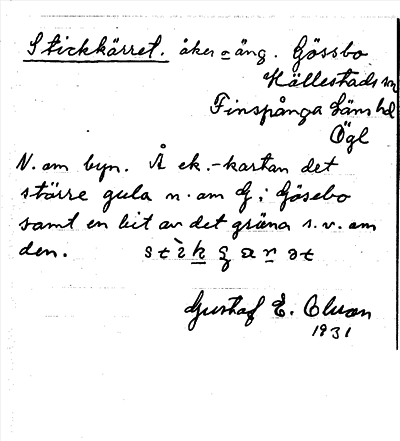 Stickkärret. åker o äng. Gössbo
Källestads sn
Finspånga läns hd
Ögl
N. om byn. Å ek.-kartan det
större gula n. om G i Gösebo
samt en bit av det gröna s.v. om
den.
Gustaf E.
1931